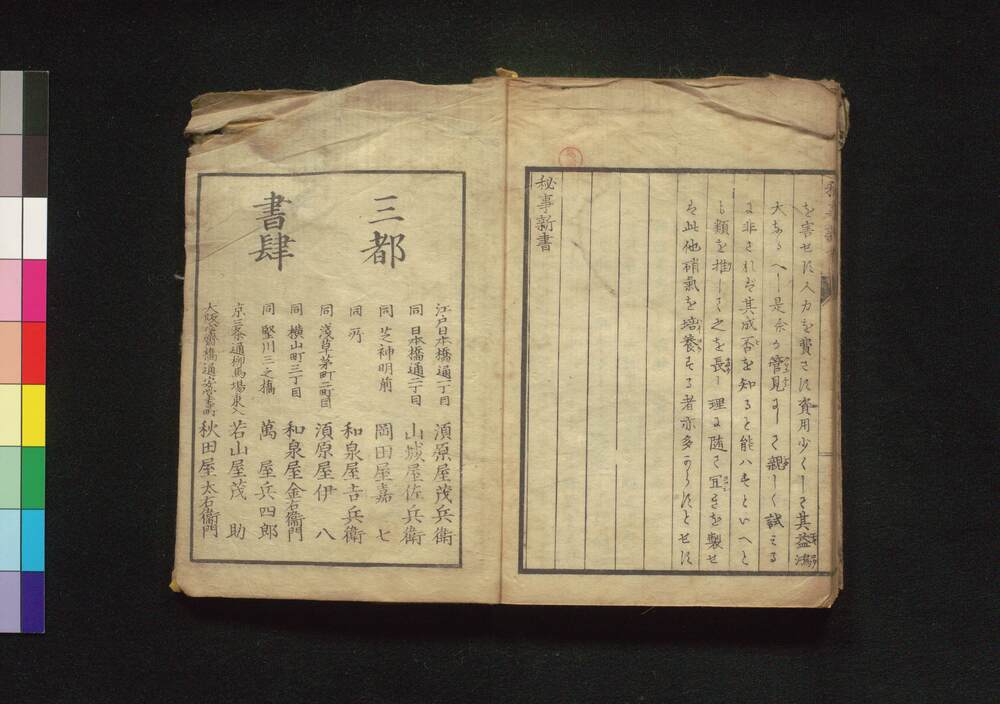 を害せす人力を費さす費用少くして其益鴻
大なるへし是余か管見にして親しく試みる
に非されは其成否を知ること能ハすといへとも
類を推して之を長し理に随て宜きを製せ
は此他硝氣を培養する者亦多からんとせす
秘事新書
三都
書肆
江戸日本橋通一丁目 須原屋茂兵衛
同 日本橋通二丁目 山城屋佐兵衛
同 芝神明前 岡田屋嘉七
同 所 和泉屋吉兵衛
同 淺草茅町二町目 須原屋伊八
同 横山町三丁目 和泉屋金右衛門
同 堅川三之橋 萬屋兵四郎
京三条通柳馬場東入 若山屋茂助
大阪心齋橋通安堂寺町 秋田屋太右衛門